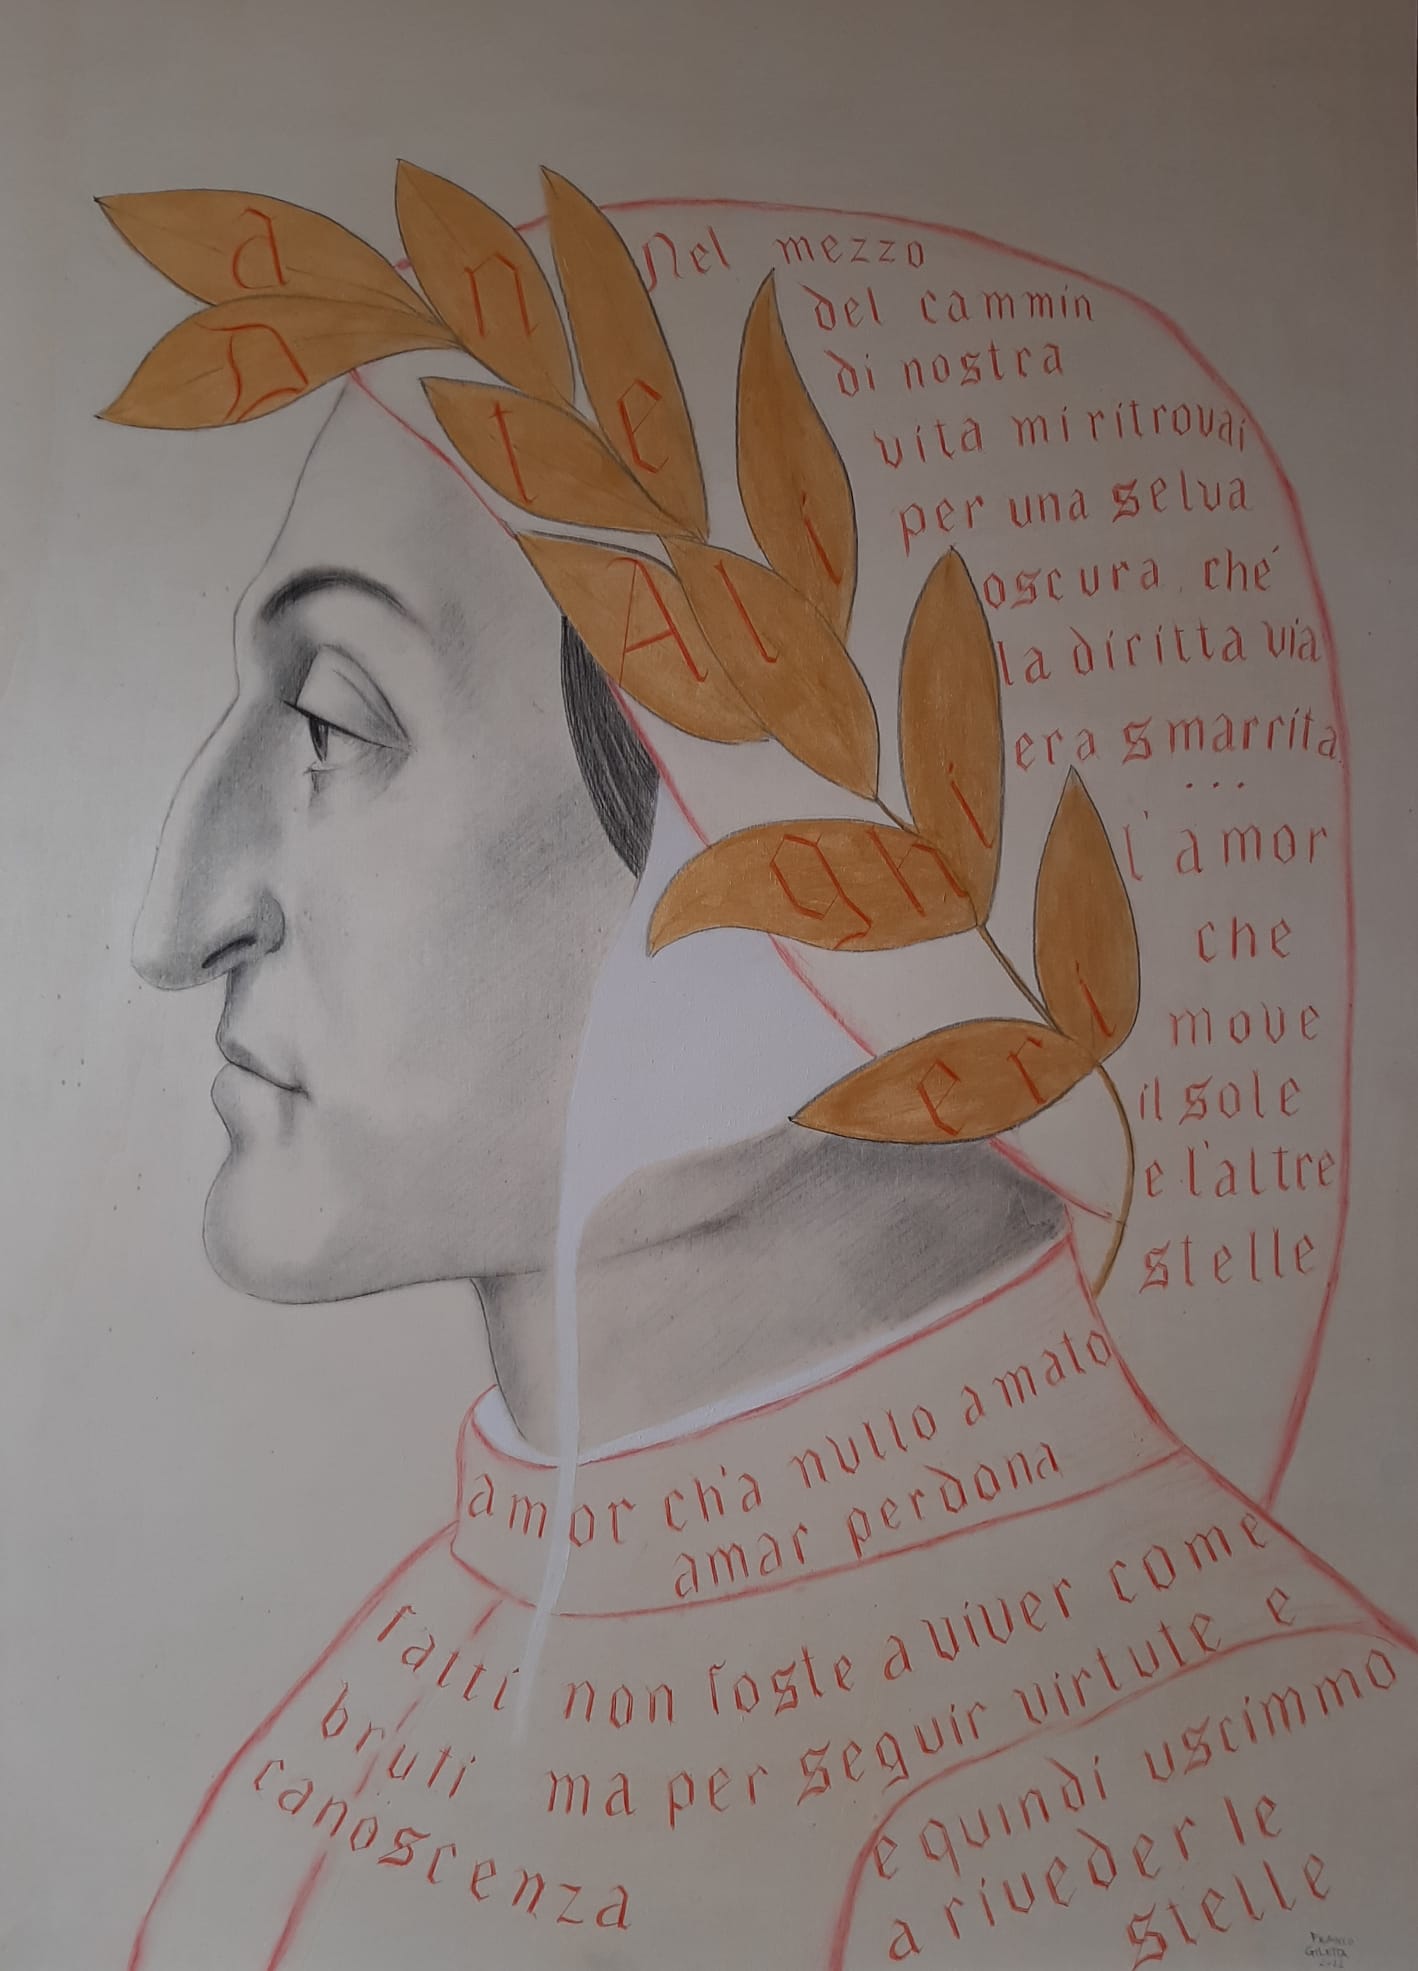 Dante
Alighieri
Nel mezzo
del cammin
di nostra
vita mi ritrovai
per una selva
oscura, ché
la diritta via
era smarrita
...
l'amor
che
move
il sole
e l'altre
stelle
amor ch'a nullo amato
amar perdona
fatti non foste a viver come
bruti ma per seguir virtute e
canoscenza
e quindi uscimmo
a riveder le
stelle
FRANCO
GILETTA